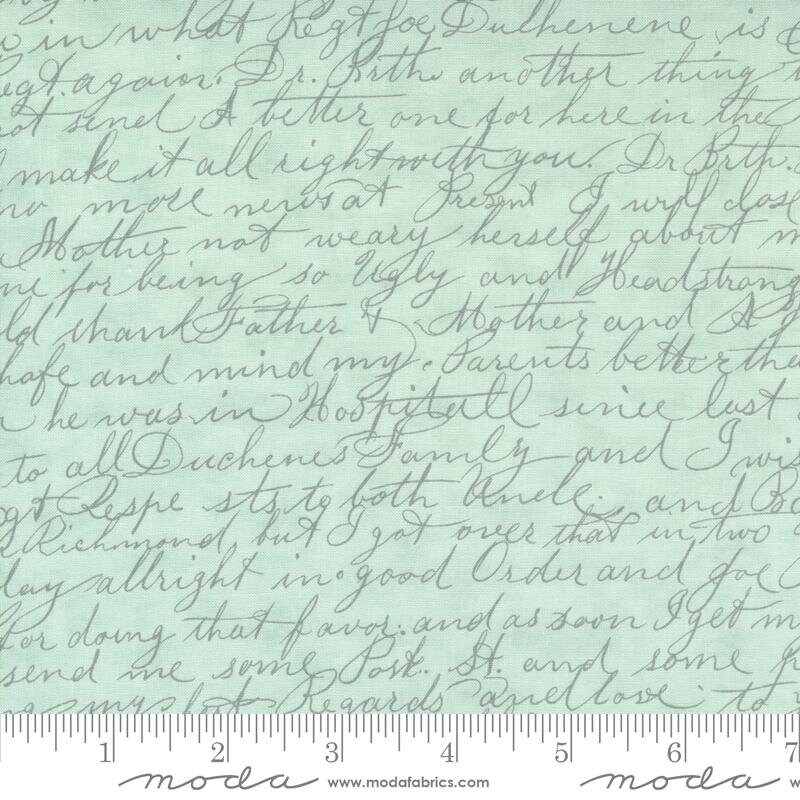 in what Regt Joe Duchenene is
Regt. again. Dr. Brth. another thing
not send A better one for here in the
make it all right with you. Dr Brth.
no more news at Present I will close
Mother not weary herself about
for being so Ugly and Headstrong
thank Father & Mother and
and mind my Parents better
he was in Hospitall since last
to all Duchenes Family and I
Respe sts to both Uncle. and
Richmond, but I got over that in two
allright in good Order and Joe
for doing that favor. and as soon I get
send me some Post. St. and some
my Regards and love to
1 2 3 4 5 6 7
moda www.modafabrics.com moda w